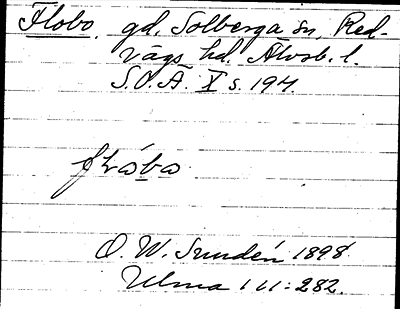 Flobo, gd. Solberga sn, Red-
vägs hd. Älvsb. l.
S.O.Ä. X s. 194.
flåba
O. W. Sundén 1898
Ulma 111:282.